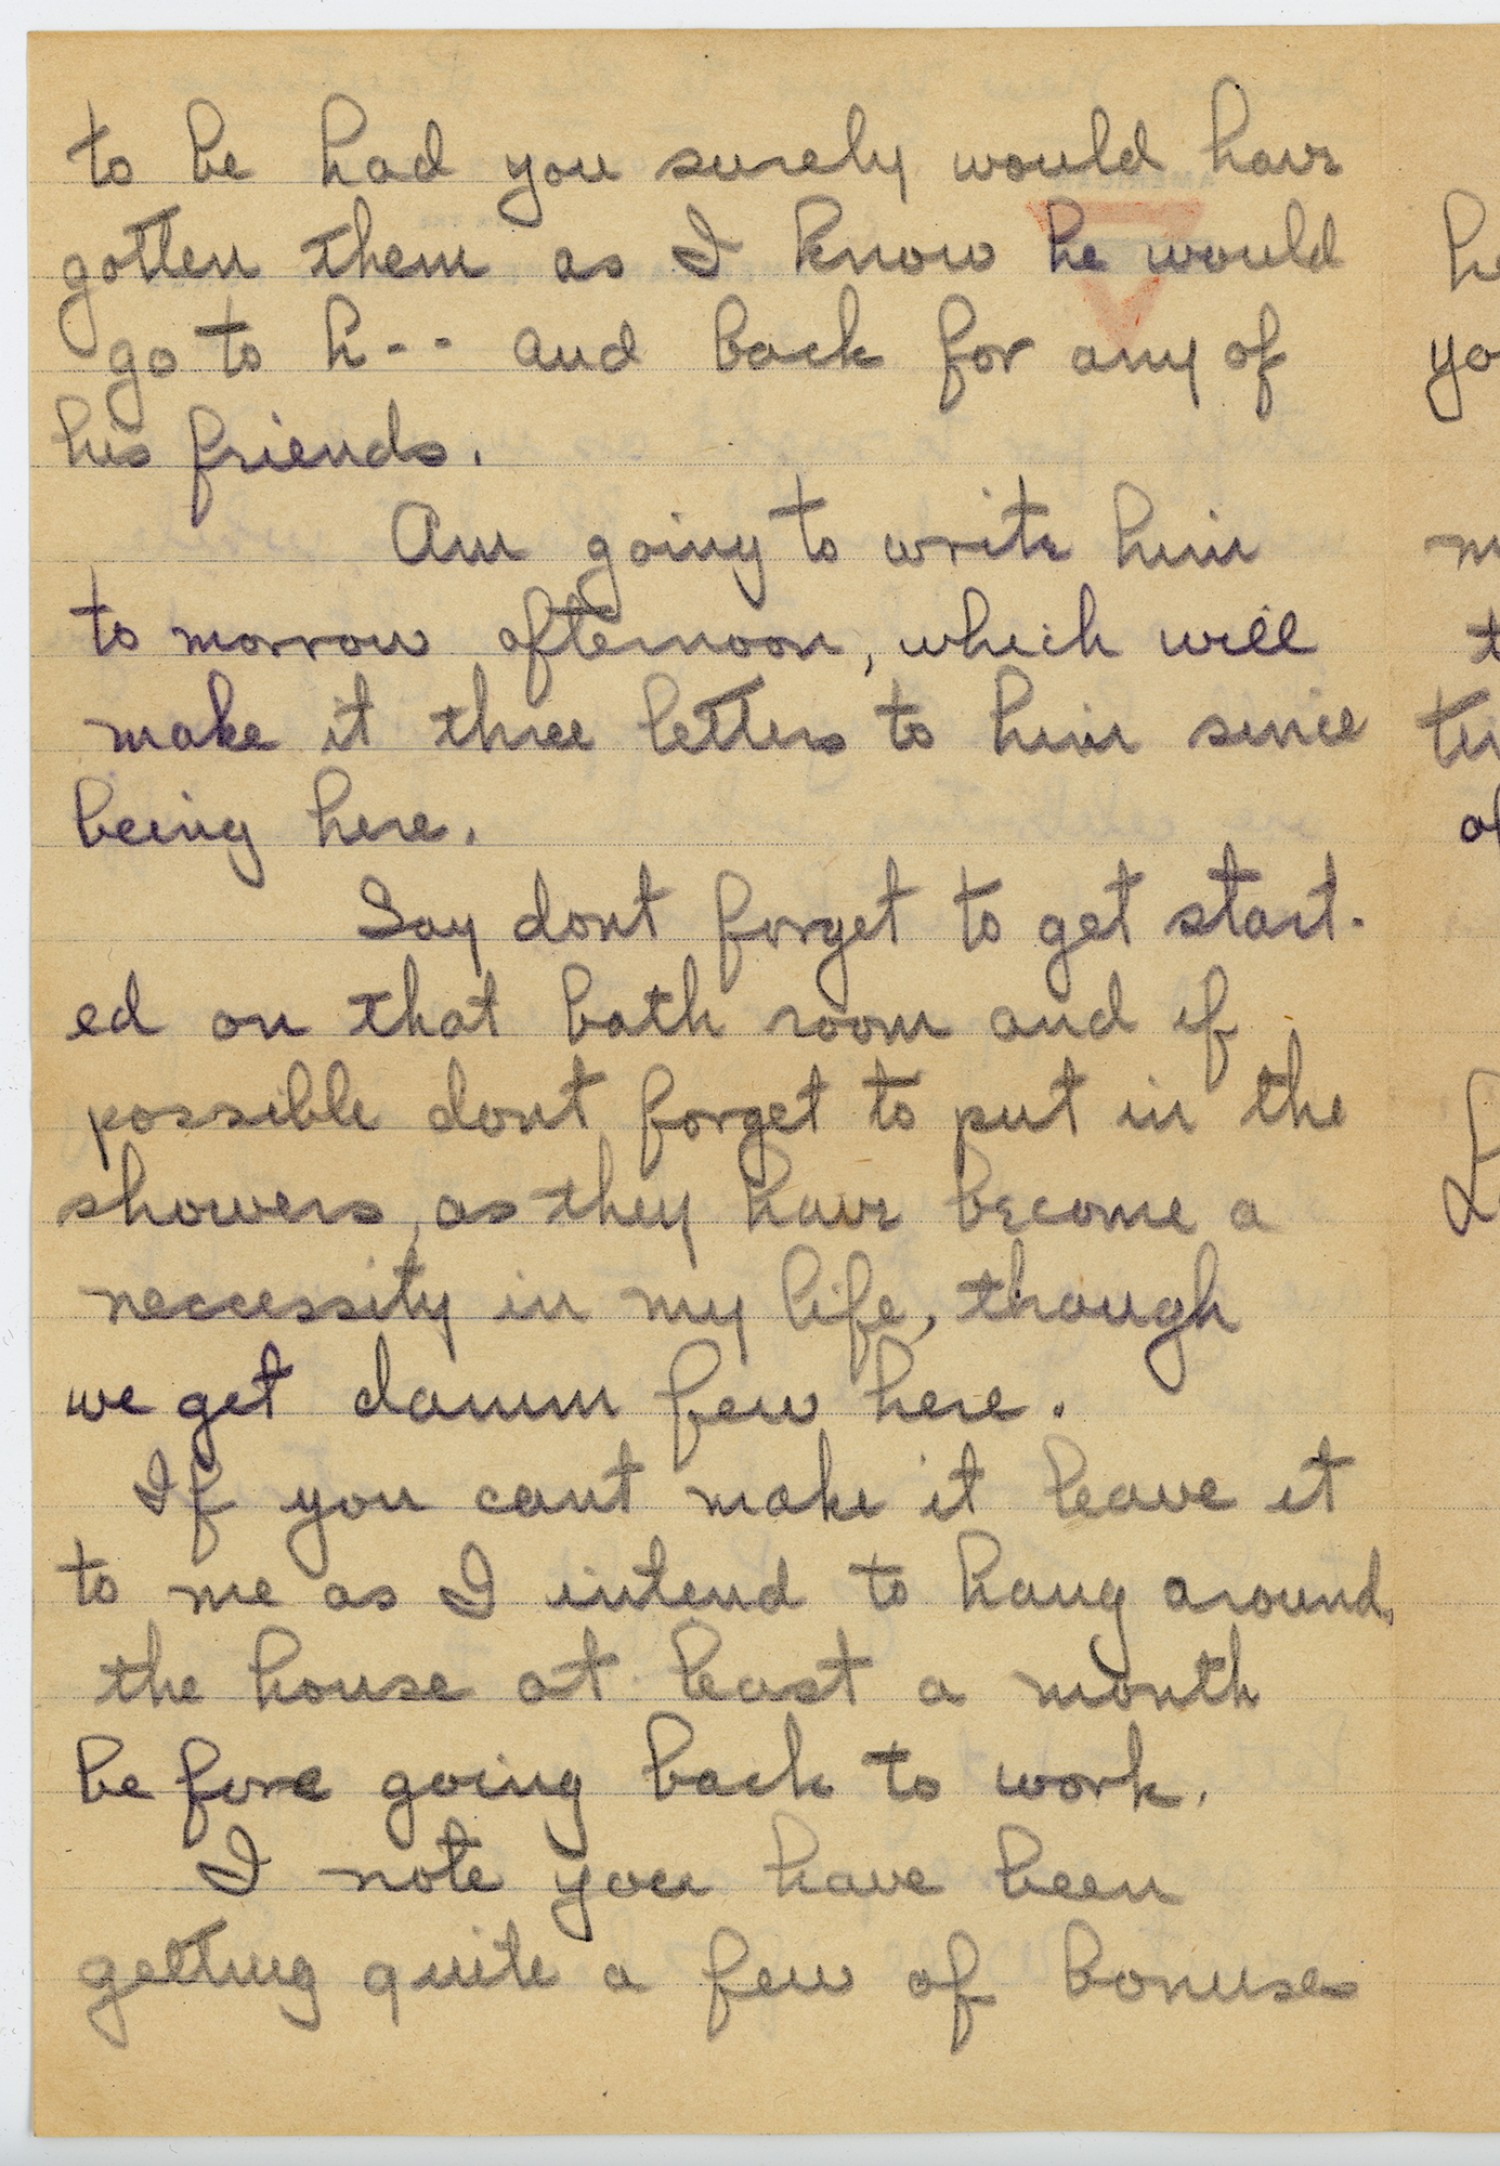 to be had you surely would have
gotten them as I know he would
go to h-- and back for any of
his friends.
Am going to write him
to morrow afternoon, which will
make it three letters to him since
being here.
Say dont forget to get start-
ed on that bath room and if
possible dont forget to put in the
showers, as they have become a
neccessity in my life, though
we get damm few here.
If you cant make it leave it
to me as I intend to hang around
the house at least a month
before going back to work.
I note you have been
getting quite a few of bonuses